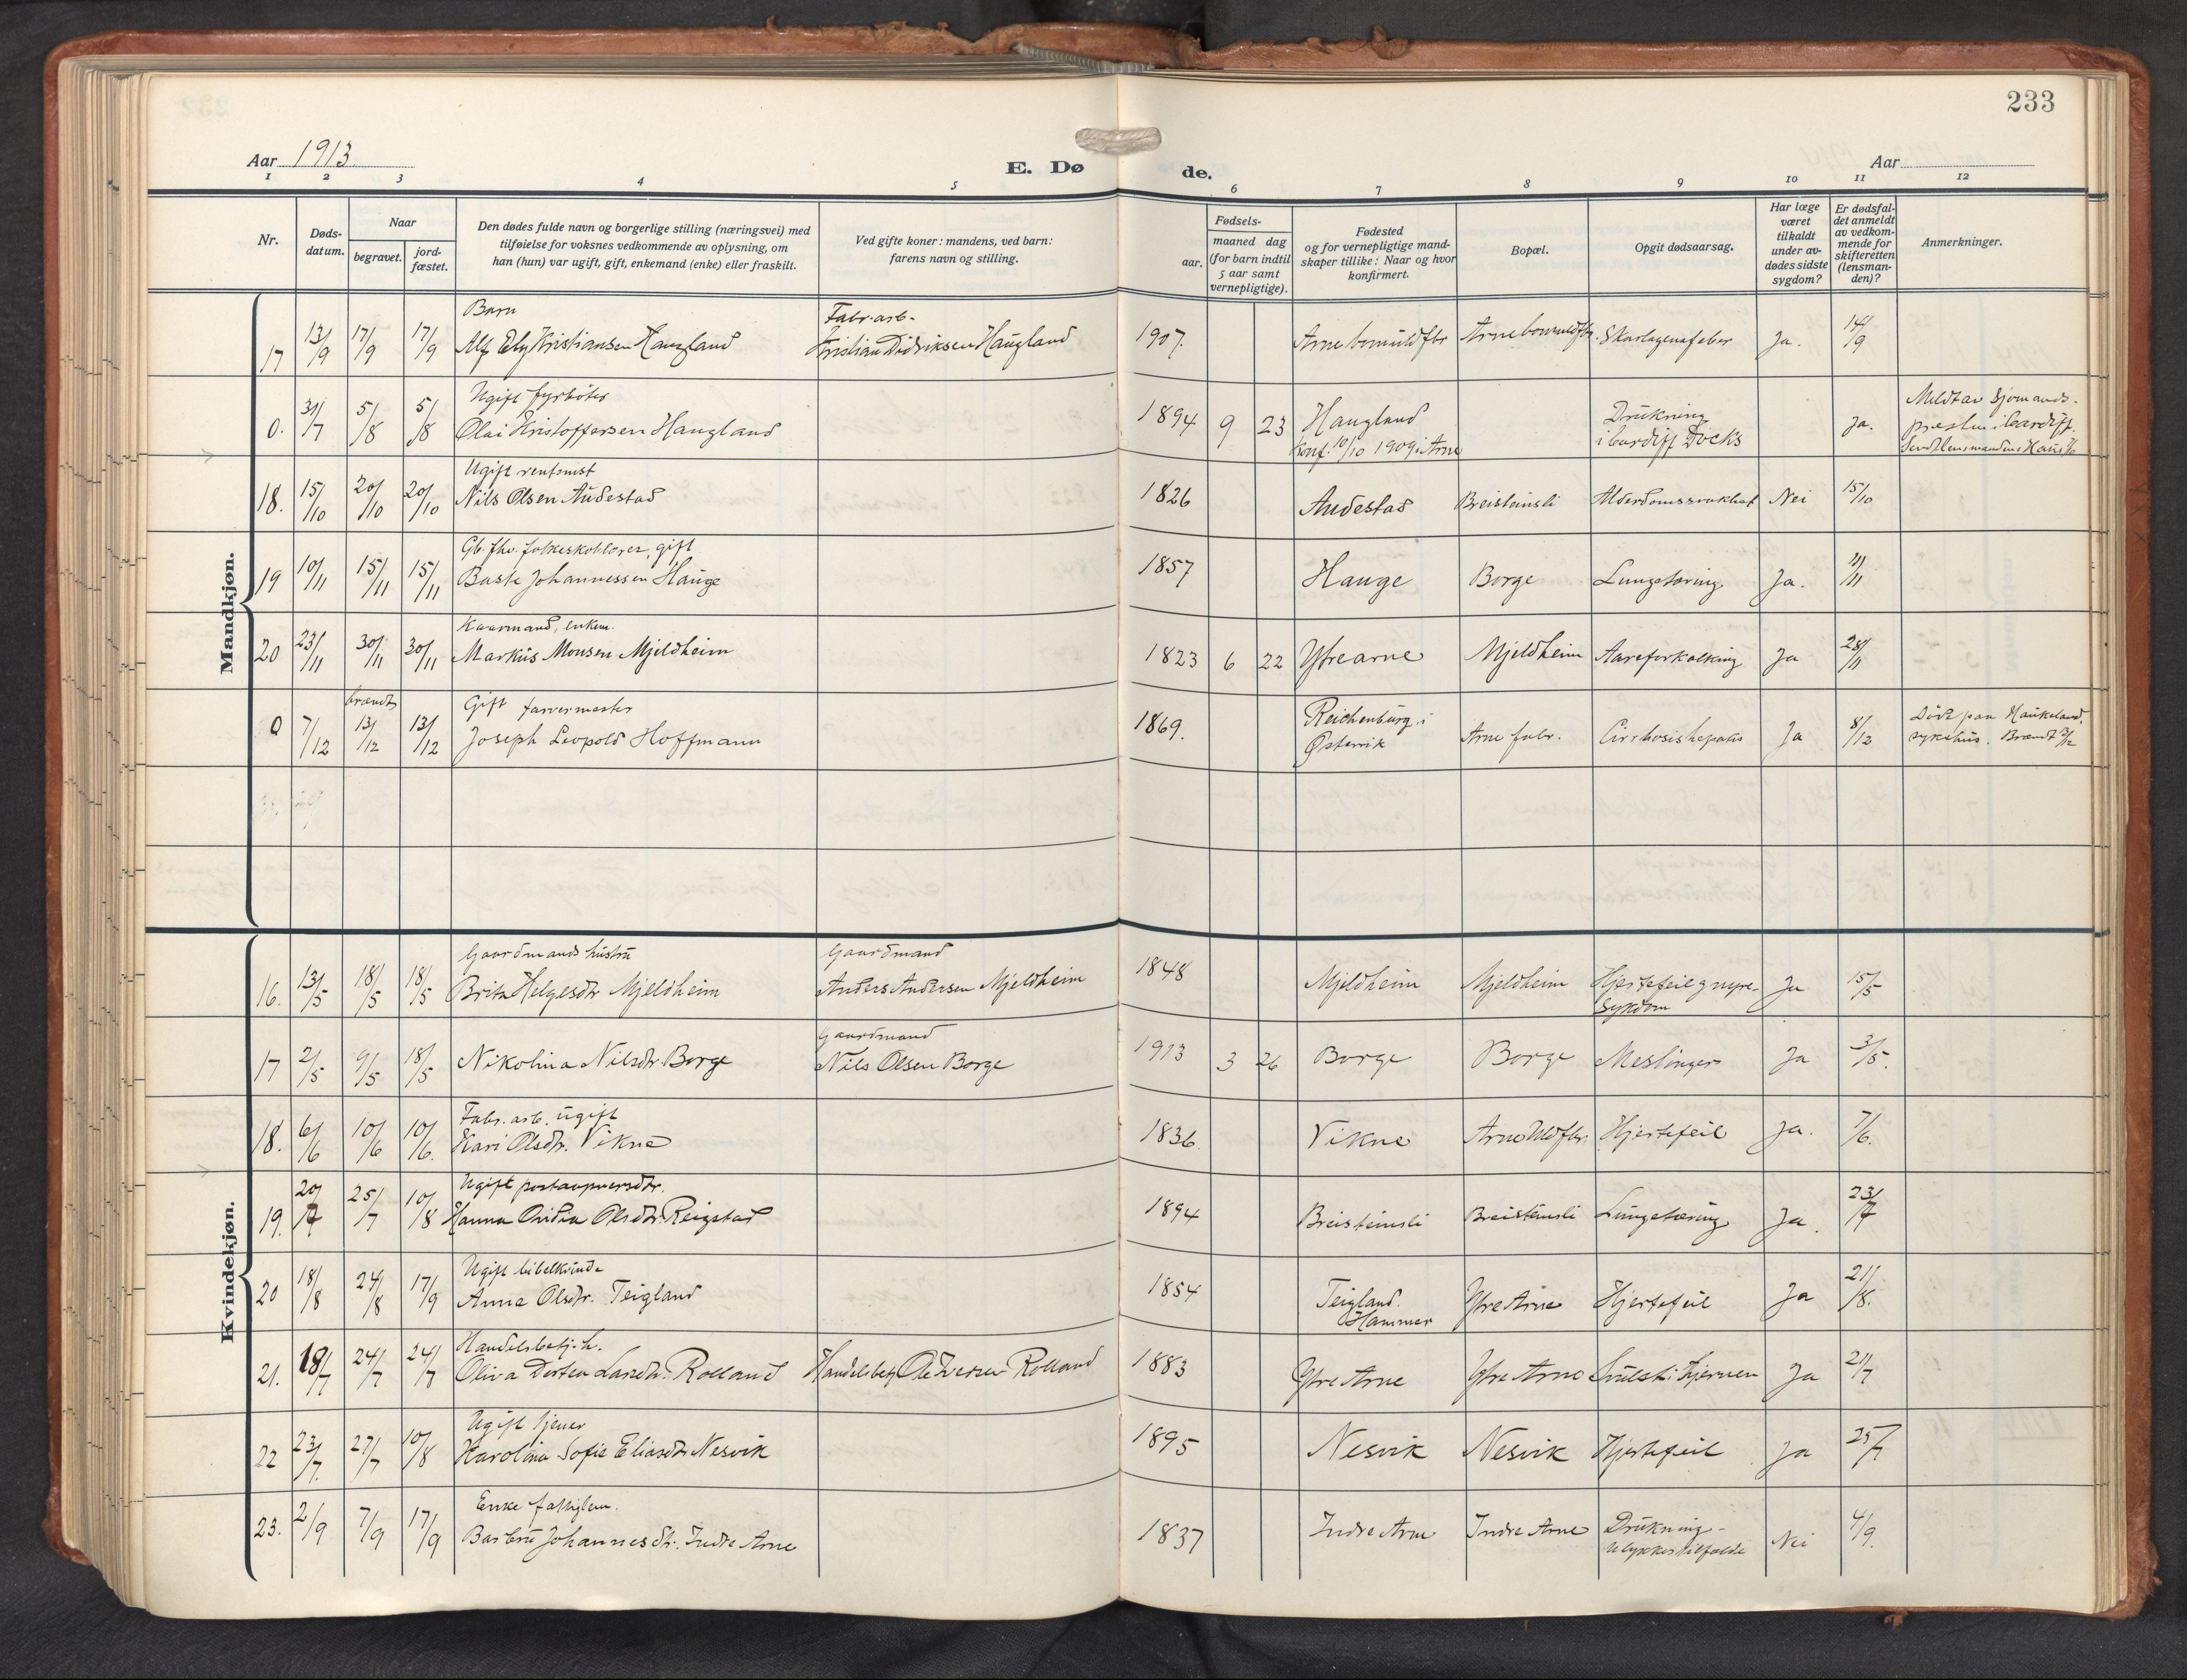 233
Aar 1913
E. Dø
de.
Aar
1 2 3 4 5 6 7 8 9 10 11 12
Nr.
Døds-
datum.
Naar
begravet.
jord-
fæstet.
Den dødes fulde navn og borgerlige stilling (næringsvei) med
tilføielse for voksnes vedkommende av oplysning, om
han (hun) var ugift, gift, enkemand (enke) eller fraskilt.
Ved gifte koner: mandens, ved barn:
farens navn og stilling.
Fødsels-
aar.
maaned dag
(for barn indtil
5 aar samt
vernepligtige).
Fødested
og for vernepligtige mand-
skaper tillike: Naar og hvor
konfirmert.
Bopæl.
Opgit dødsaarsag.
Har læge
været
tilkaldt
under av-
dødes sidste
sygdom?
Er dødsfal-
det anmeldt
av vedkom-
mende for
skifteretten
(lensman-
den)?
Anmerkninger.
Mandkjøn.
Barn
Fabr.arb.
17 13/9 17/9 17/9 Alf Kristiansen Haugland Kristian Didriksen Haugland 1907. Arne bomuldfbr Arne bomuldfbr. Skarlagensfeber Ja. 14/9
Ugift fyrbøter
0. 31/7 5/8 5/8 Olai Kristoffersen Haugland 1894 9 23 Haugland
Konf. 10/10 1909 i Arne
Drukning
i Cardiff Docks
Ja.
Meldt av Sjømands-
presten i Cardiff.
Ugift rentenist
18. 15/10 20/10 20/10 Nils Olsen Audestad 1826 Audestad Breisteinsli Alderdomssvakhet Nei 15/10
Gb. fhv. folkeskolelærer, gift
19 10/11 15/11 15/11 Baste Johannessen Hauge 1857 Hauge Borge Lungetæring Ja. 11/11
Kaarmand, enkem.
20 23/11 30/11 30/11 Markus Monsen Mjeldheim 1823 6 22 Ytrearne Mjeldheim Aareforkalkning Ja 28/11
brændt
Gift farvermester
0 7/12 13/12 13/12 Joseph Leopold Hoffmann 1869. Reichenburg i
Østerrik
Arne fabr. Cirrhosis hepatis Ja 8/12
Døde paa Haukeland
sykehus. Brændt 13/12
Kvindekjøn.
Gaardmands hustru
Gaardmand
16. 13/5 18/5 18/5 Brita Helgesdtr Mjeldheim Anders Andersen Mjeldheim 1848 Mjeldheim Mjeldheim Hjertefeil g nyre-
sykdom
Ja 15/5
Gaardmand
17 2/5 9/5 18/5 Nikolina Nilsdtr. Borge Nils Olsen Borge 1913 3 26 Borge Borge Meslinger Ja 3/5.
Fabr. arb. ugift
18. 6/6 10/6 10/6. Kari Olsdtr. Vikne 1836 Vikne Arne Uldfbr. Hjertefeil Ja. 7/6.
Ugift postaapnersdtr.
19. 20/7 25/7 10/8 Hanna Olsdtr. Reigstad 1894 Breisteinsli Breisteinsli Lungetæring Ja. 23/7
Ugift bibelkvinde
20 18/8 24/8 17/9 Anna Olsdtr. Teigland 1854 Teigland.
Hammer
Ytre Arne Hjertefeil Ja 21/8.
Handelsbetj. h.
21. 18/7 24/7 24/7 Oliva Dortea Larsdtr. Rolland Handelsbetj Ole Iversen Rolland 1883 Ytre Arne Ytre Arne Svulst i Hjernen Ja 21/7
Ugift tjener
22 23/7. 27/7 10/8 Karolina Sofie Eliasdtr Nesvik 1895 Nesvik Nesvik Hjertefeil Ja 25/7
Enke fattiglem.
23. 2/9 7/9 17/9 Barbru Johannesdtr. Indre Arne 1837 Indre Arne Indre Arne Drukning-
ulykkestilfælde
Nei 4/9.